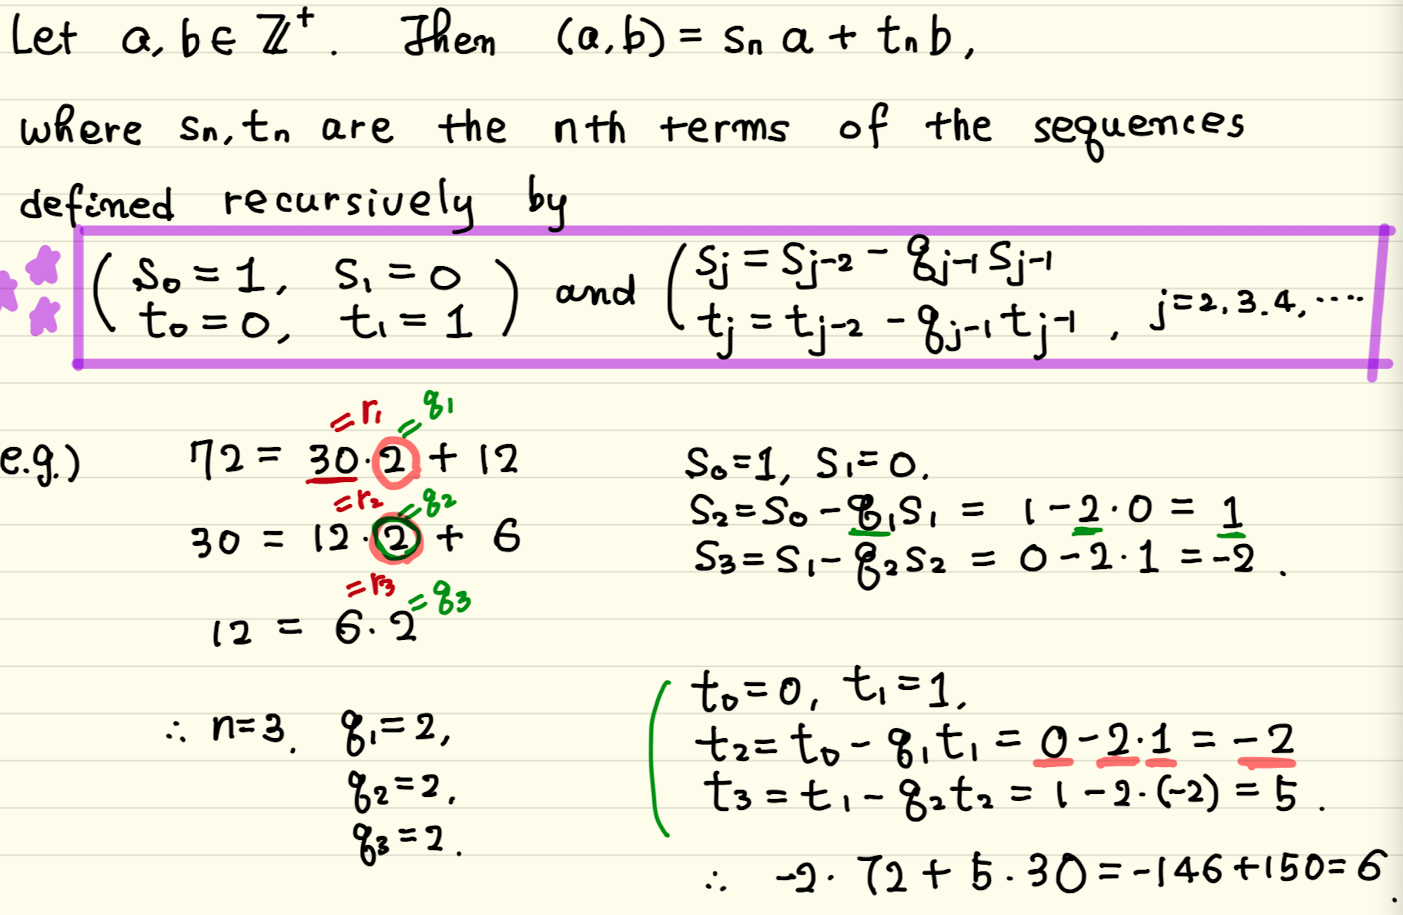 Let a, b ∈ ℤ⁺. Then (a,b) = sₙ a + tₙ b,
where sₙ, tₙ are the nth terms of the sequences
defined recursively by
( s₀ = 1, s₁ = 0 ) and ( sⱼ = sⱼ₋₂ - qⱼ₋₁ sⱼ₋₁
t₀ = 0, t₁ = 1 tⱼ = tⱼ₋₂ - qⱼ₋₁ tⱼ₋₁ , j = 2, 3. 4, ....
= r₁ = q₁
e.g.) 72 = 30 · 2 + 12
= r₂ = q₂
30 = 12 · 2 + 6
= r₃ = q₃
12 = 6 · 2
∴ n = 3. q₁ = 2,
q₂ = 2,
q₃ = 2.
s₀ = 1, s₁ = 0.
s₂ = s₀ - q₁ s₁ = 1 - 2 · 0 = 1
s₃ = s₁ - q₂ s₂ = 0 - 2 · 1 = -2 .
t₀ = 0, t₁ = 1,
t₂ = t₀ - q₁ t₁ = 0 - 2 · 1 = -2
t₃ = t₁ - q₂ t₂ = 1 - 2 · (-2) = 5 .
∴ -2 · 72 + 5 · 30 = -146 + 150 = 6 .